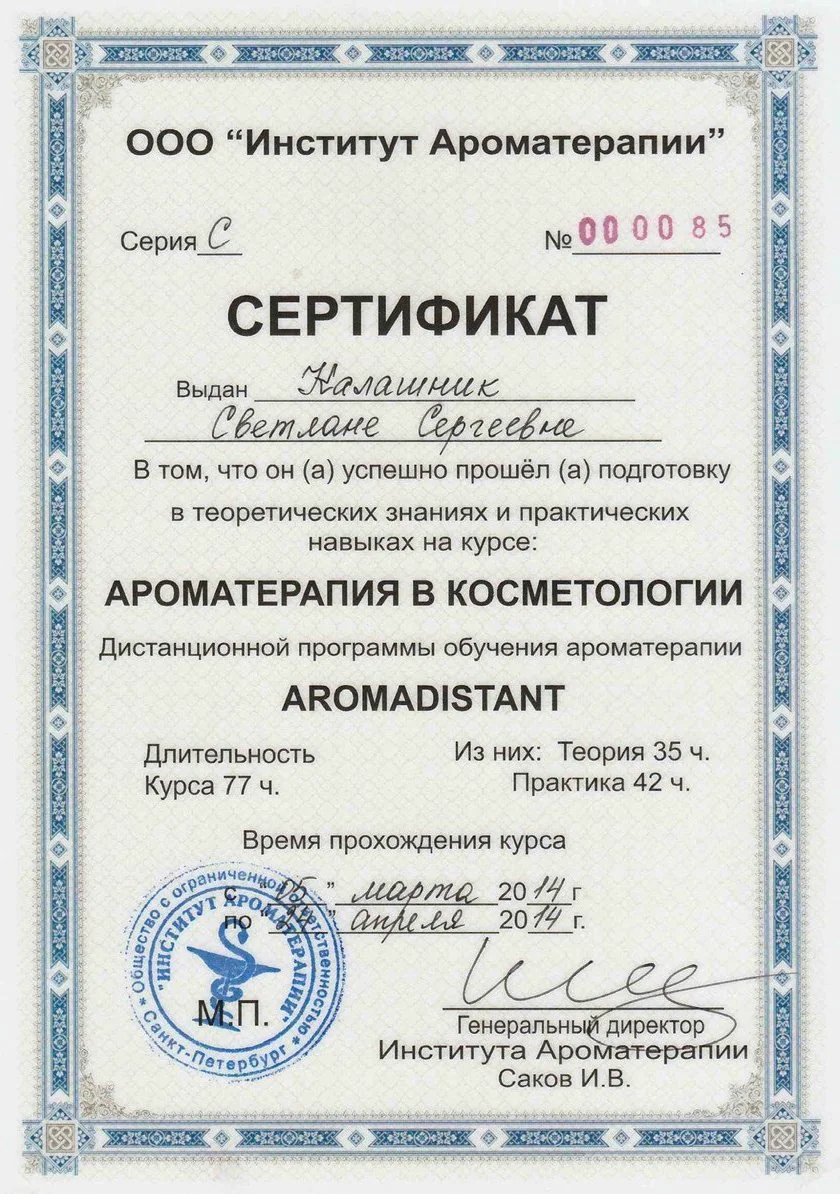 ООО “Институт Ароматерапии”
Серия С
№ 000085
СЕРТИФИКАТ
Выдан Калашник
Светлане Сергеевне
В том, что он (а) успешно прошёл (а) подготовку
в теоретических знаниях и практических
навыках на курсе:
АРОМАТЕРАПИЯ В КОСМЕТОЛОГИИ
Дистанционной программы обучения ароматерапии
AROMADISTANT
Длительность
Курса 77 ч.
Из них: Теория 35 ч.
Практика 42 ч.
Время прохождения курса
с “05” марта 2014 г
по “ ” апреля 2014 г.
Общество с ограниченной ответственностью
"ИНСТИТУТ АРОМАТЕРАПИИ"
Санкт-Петербург
М.П.
Генеральный директор
Института Ароматерапии
Саков И.В.